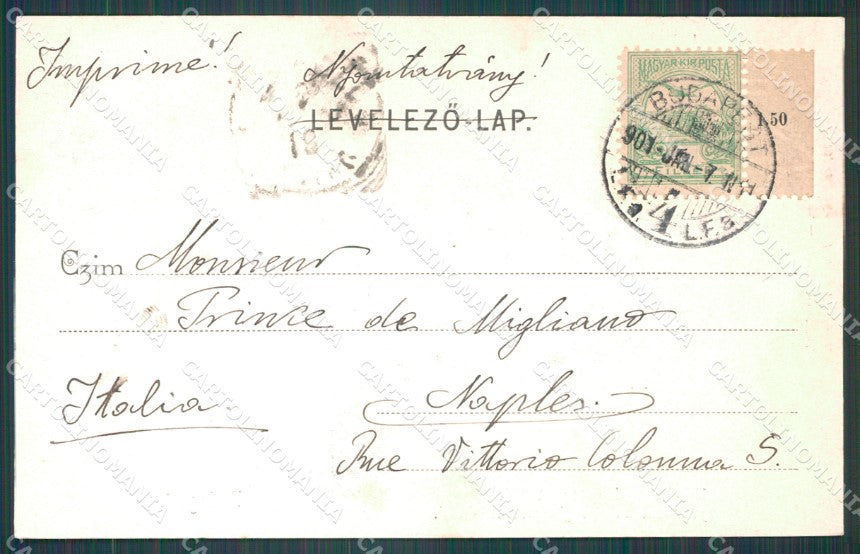 Imprimé! Nyomtatvány!
MAGYAR KIR. POSTA
LEVELEZŐ-LAP.
1.50
BUDAPEST
901-JAN.-7
4
L.F.8.
Czim Monsieur
Prince de Migliano
Italia
Naples.
Rue Vittorio Colonna 5.
CARTOLINOMANIA